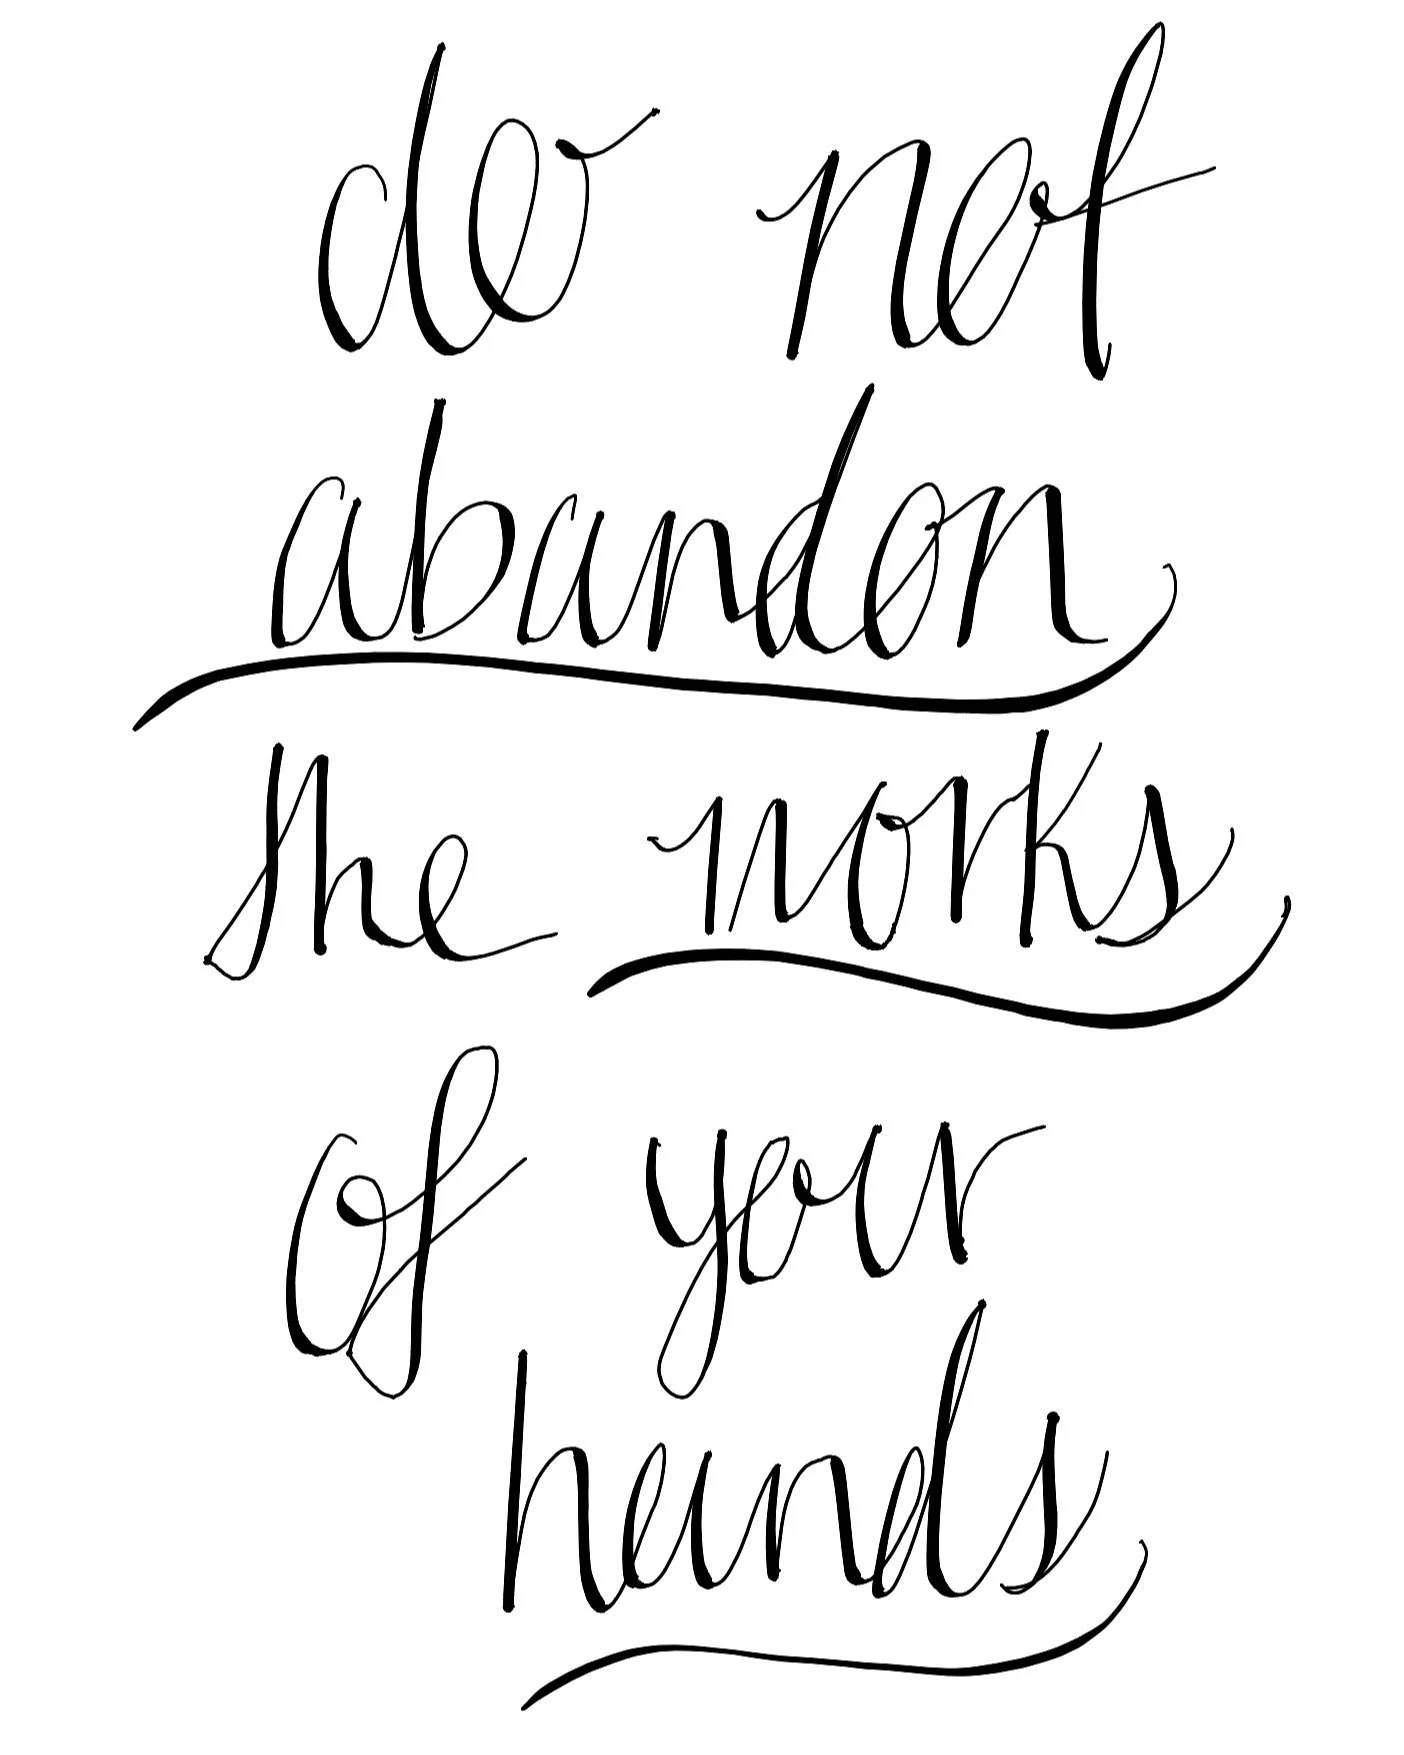 do not
abandon
the works
of your
hands